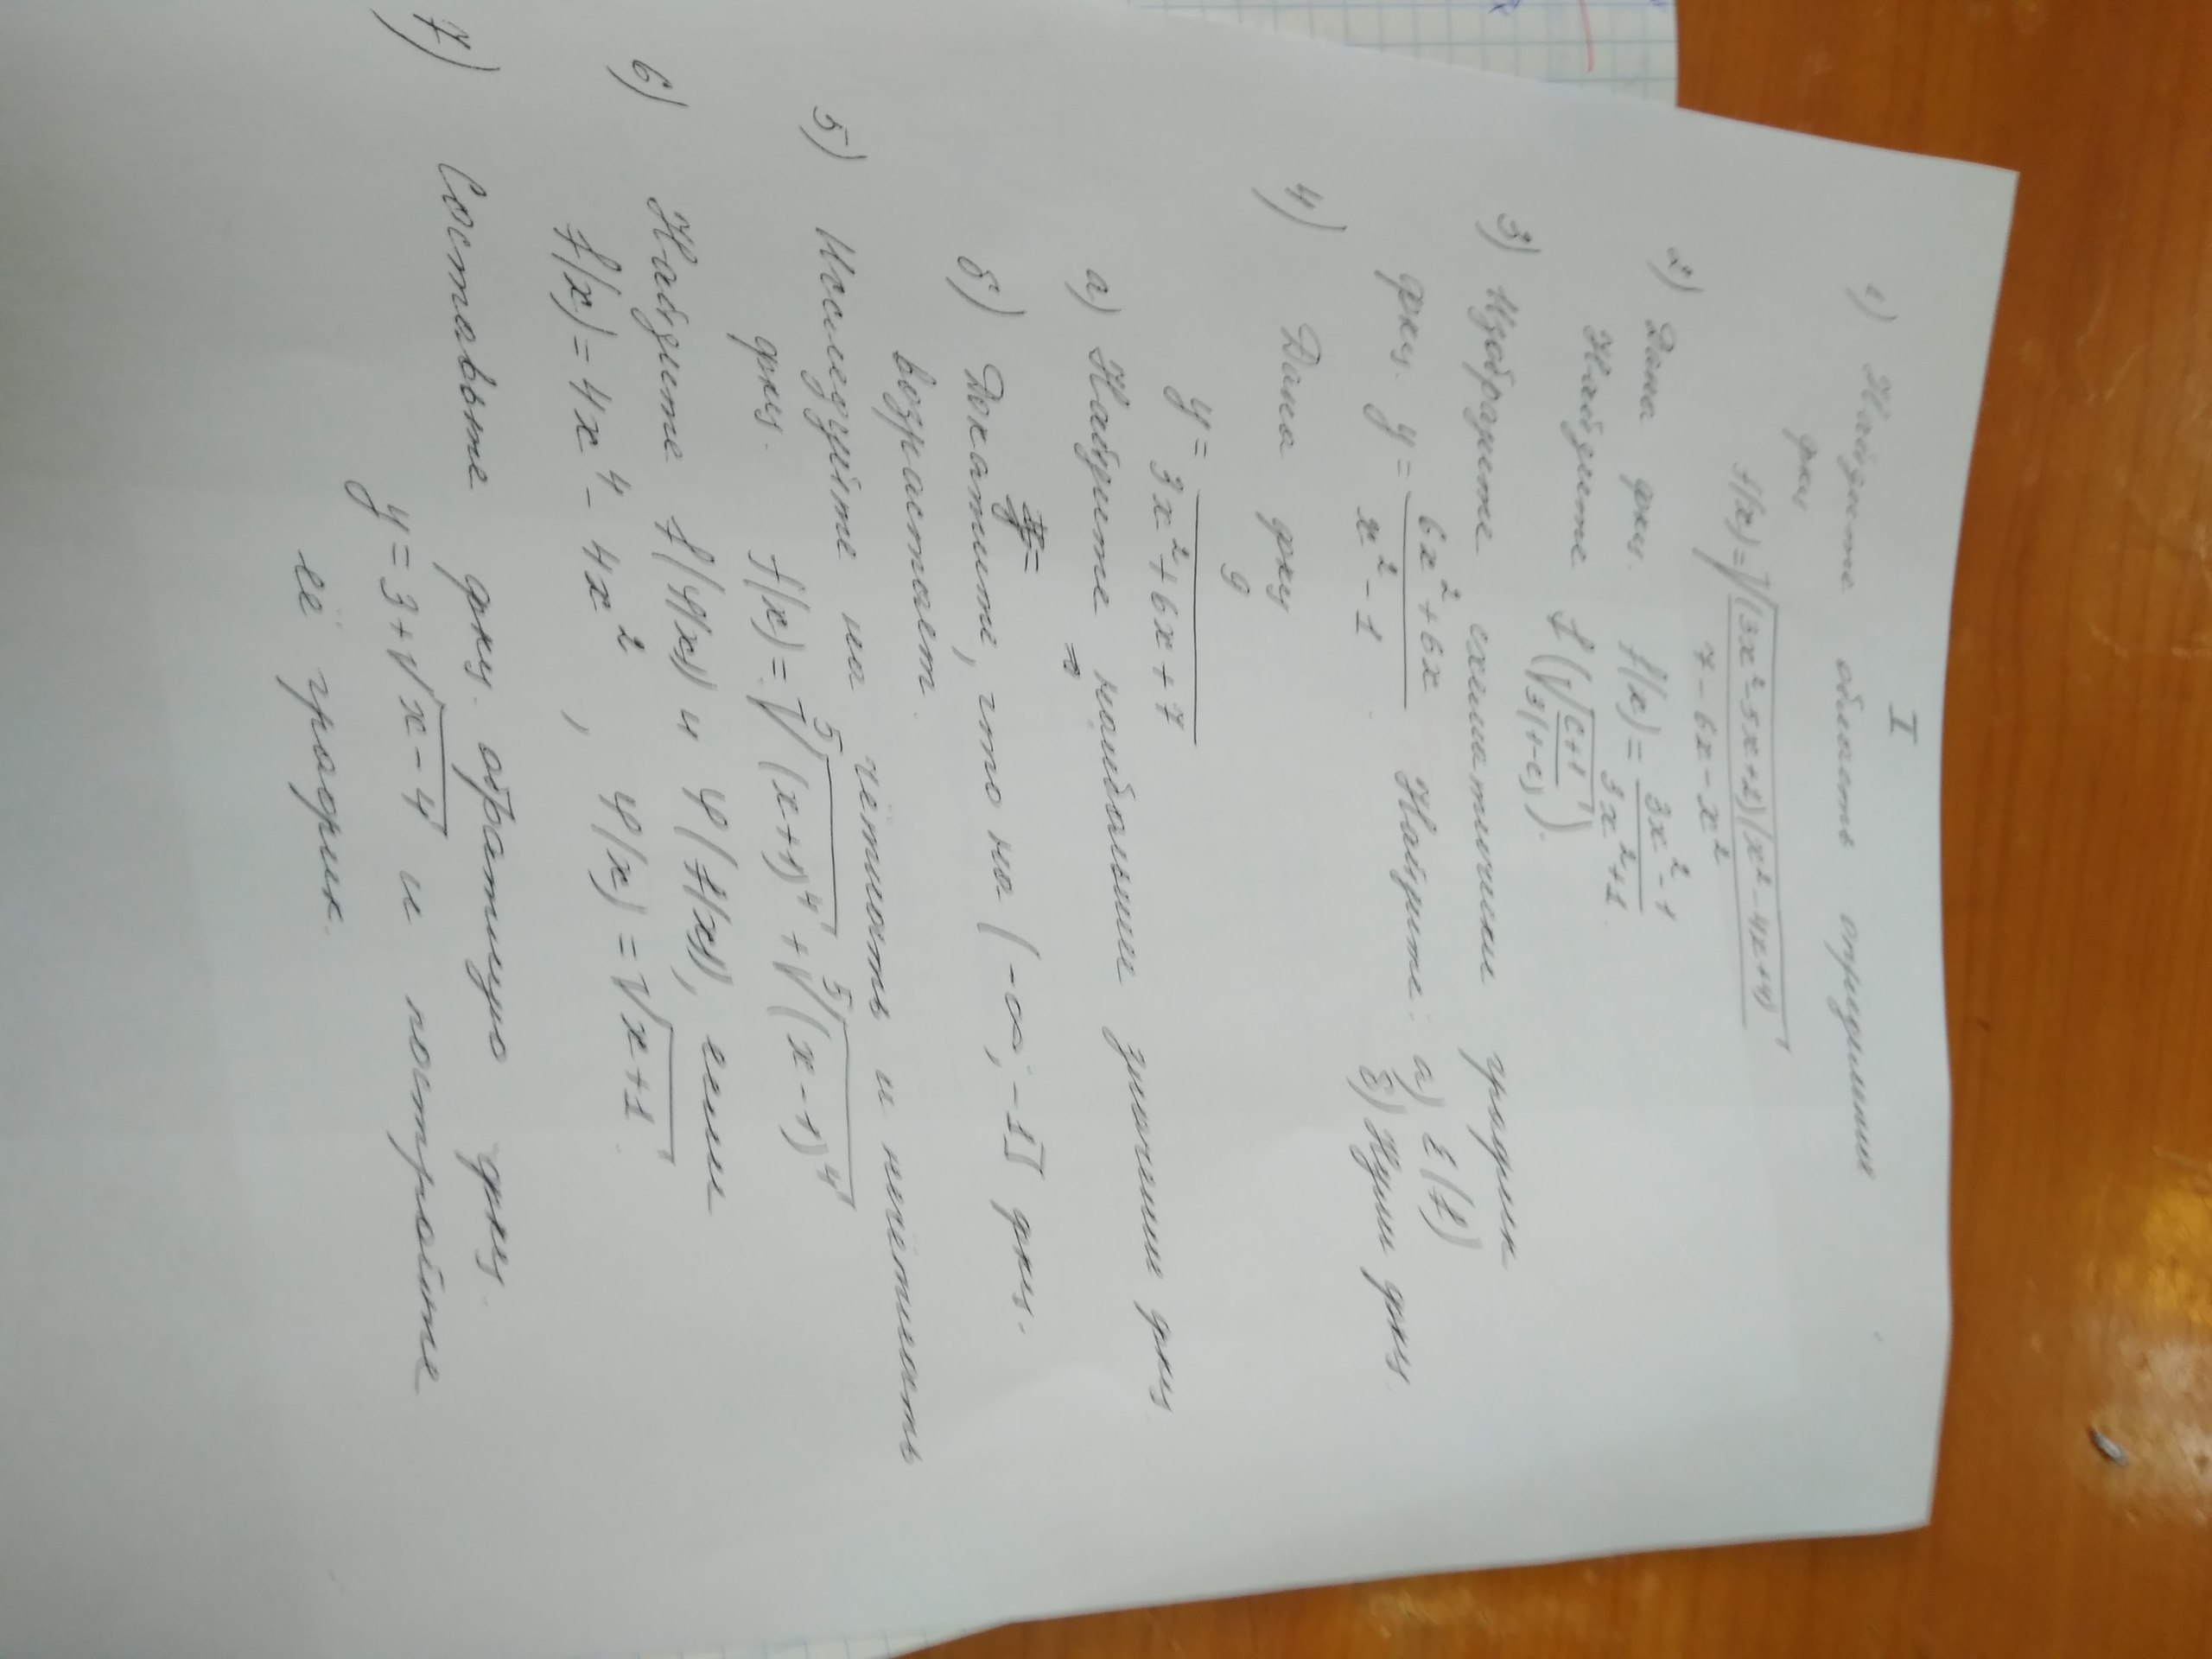 I
1) Найдите область определения
функ
f(x) = √((3x²-5x+2)(x²-4x+4))
7 - 6x - x²
2) Дана функ. f(x) = (3x²-1)/(3x²+1).
Найдите f(√((c+1)/(3(1-c)))).
3) Изобразите схематически график
функ. y = (6x²+6x)/(x²-1). Найдите: а) E(f)
б) Нули функ.
4) Дана функ
y = 9/(3x²+6x+7)
а) Найдите наибольшее значение функ.
б) Докажите, что на (-∞; -1] функ.
возрастает.
5) Исследуйте на чётность и нечётность
функ. f(x) = ⁵√((x+1)⁴) + ⁵√((x-1)⁴)
6) Найдите f(φ(x)) и φ(f(x)), если
f(x) = 4x⁴ - 4x², φ(x) = √(x+1).
7) Составьте функ. обратную функ.
y = 3+√(x-4) и постройте
её график.